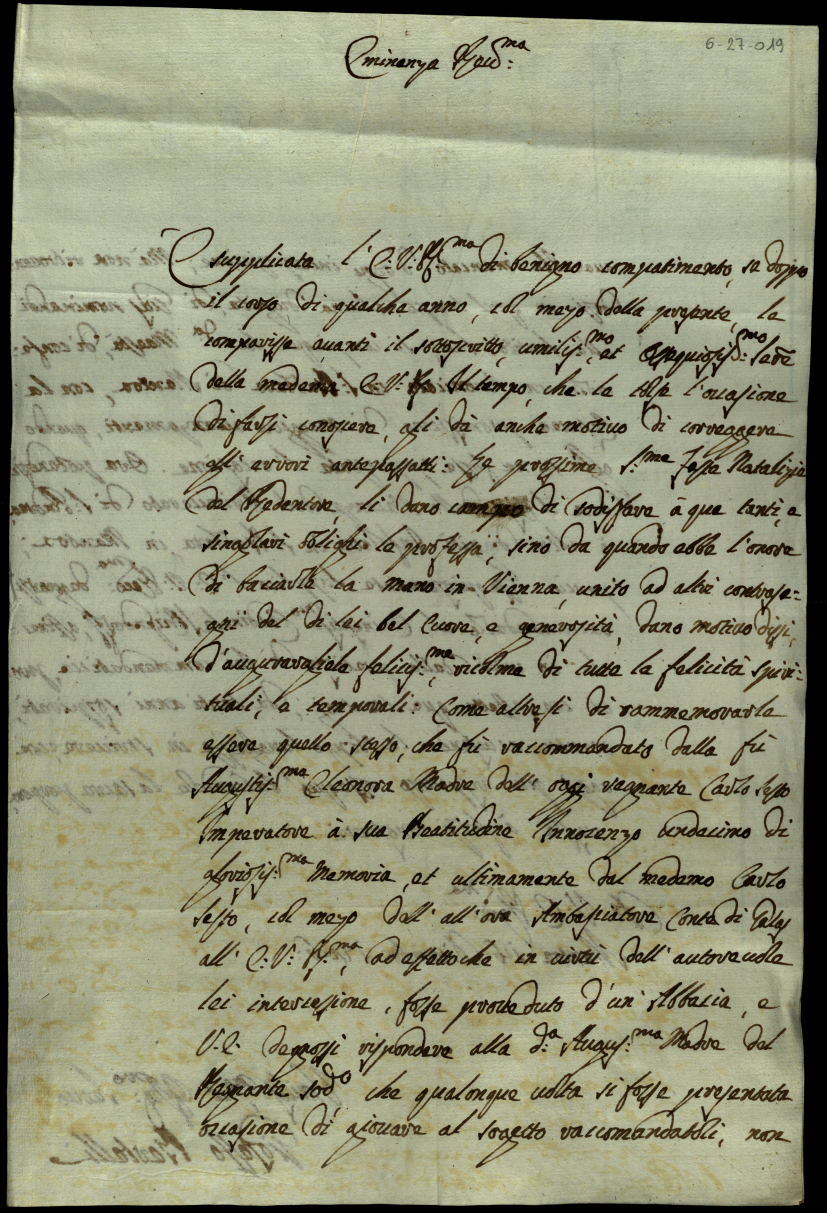 6-27-019
Eminenza Reud:ma
E supplicata l'E:V:R:ma di benigno compatimento, se doppo
il corso di qualche anno, col mezo della presente, le
comparisse auanti il sottoscritto, umilis:mo, et ossequiosis:mo Serre
della medema E:V: Il tempo, che le tolse l'ocasione
di farsi conoscere, gli dà anche motiuo di correggere
gli errori antepassatti: Le prossime S:me Feste Natalizie
del Redentore, li dano campo di sodisfare à que tanti, e
singolari oblighi le professa; sino da quando ebbe l'onore
di bacciarle la mano in Vienna, unito ad altri contrase=
gni del di lei bel Cuore, e generosità, dano motiuo dissi,
d'augurargliele felicis:me, ricolme di tutte le felicità spiri:
tuali, e temporali: Come altresì di rammemorarle
essere quello stesso, che fù raccommandato dalla fù
Augustis:ma Eleonora Madre dell' oggi regnante Carlo Sesto
Imperatore à sua Beatitudine Innocenzo Undecimo di
gloriosis:ma Memoria, et ultimamente dal medemo Carlo
Sesto, col mezo dell' all'ora Ambasciatore Conte di Galas
all' E:V: R:ma, ad effetto che in uirtù dell' autoreuole
lei intercessione, fosse proueduto d'un' Abbacia, e
V.E. degnossi rispondere alla d:a Augus:ma Madre del
Regnante sodo che qualonque uolta si fosse presentata
occasione di giouare al sogetto raccomandatoli, non